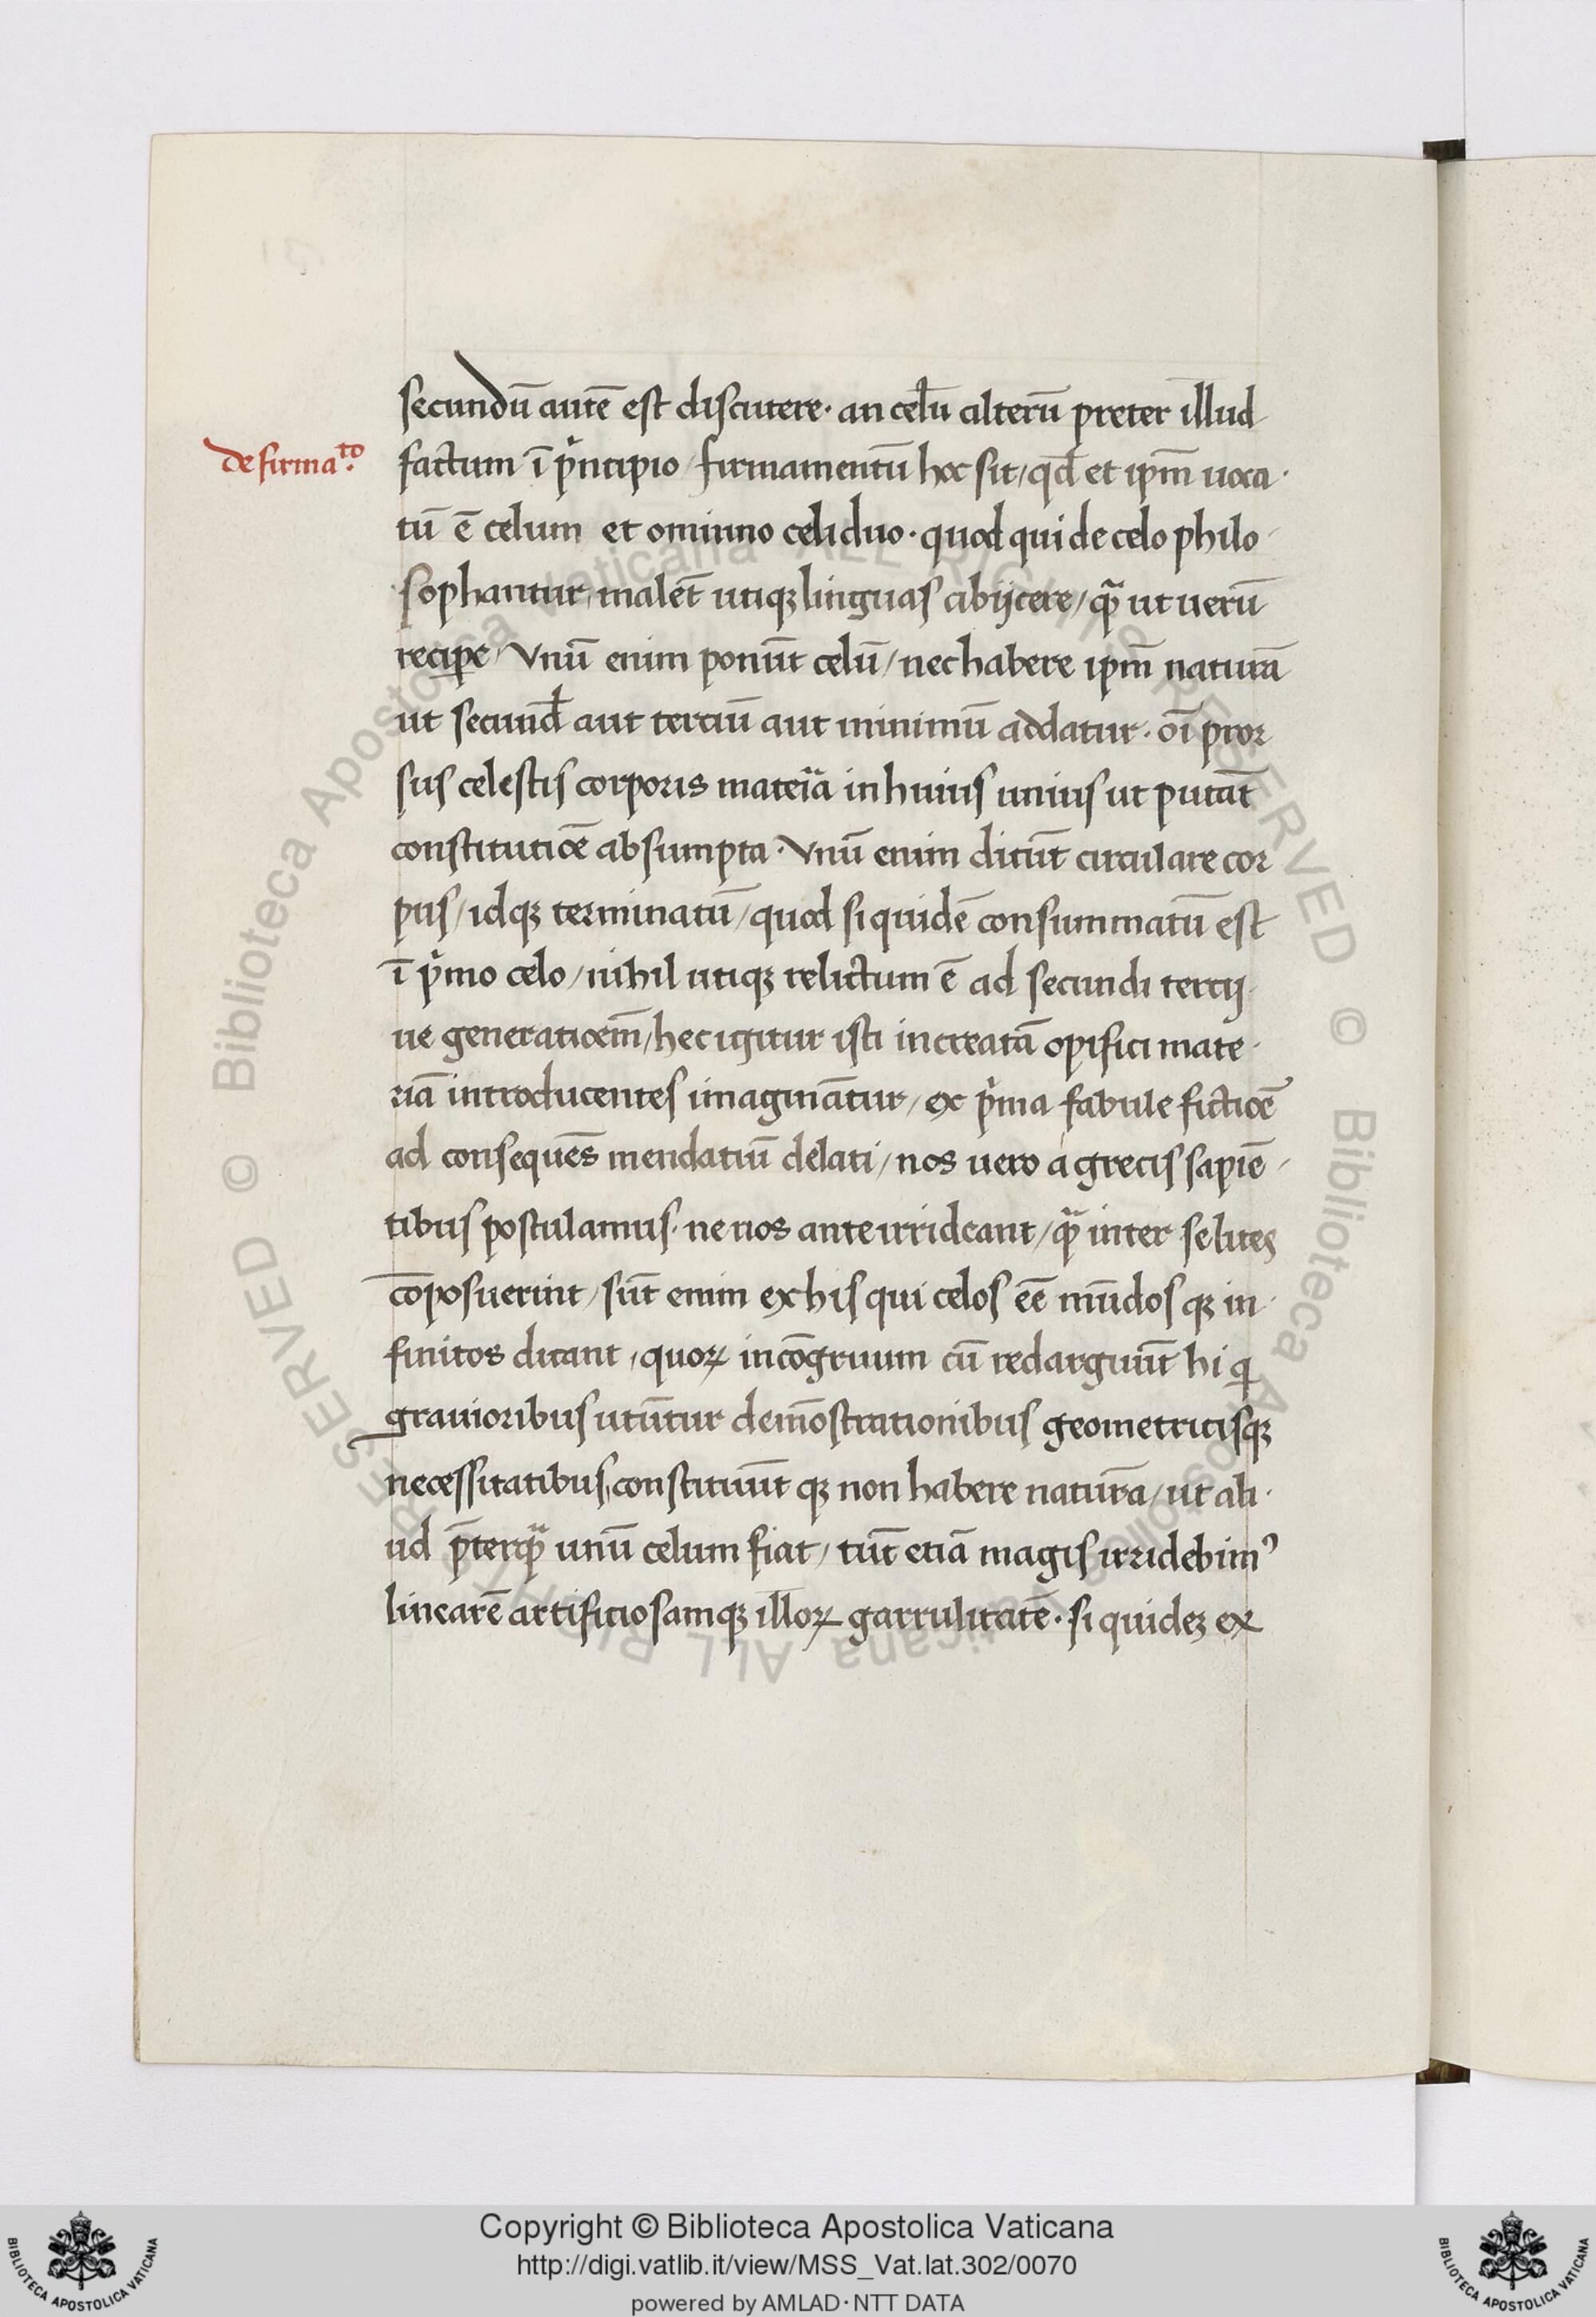 secundū autē est discutere · an celū alterū preter illud
de firma.to
factum ī pͥncipio / firmamentū hoc sit / qd̄ et ipm̄ uoca ·
tū ē celum et omnino celi duo · quod qui de celo philo ·
sophantur / malēt utiqꝫ linguas abijcere / qᷓ ut uerū
recipe / Vnū enim ponūt celū / nec habere ipm̄ naturā
ut secund̄ aut terciū aut minimū addatur · oī pror
sus celestis corporis mateᷓia in huius unius ut putāt
constitutiōe absumpta · Vnū enim dicūt circulare cor
pus / idqꝫ terminatū / quod siquidē consummatū est
ī pͥmo celo / nihil utiqꝫ relictum ē ad secundi tercij ·
ue generatioem̄ / hec igitur isti increatā opifici mate ·
riā introducentes imaginātur / ex pͥma fabule fictiōe
ad consequēs mendatiū delati / nos uero a grecis sapiē /
tibus postulamus · ne nos ante irrideant / qᷓ inter se lites
cōposuerint / sūt enim ex his qui celos eē mūdos qꝫ in ·
finitos dicant / quoꝝ incōgruum cū redarguūt hi ꝗ
grauioribus utūtur demōstrationibus geometricisqꝫ
necessitatibus / constituūt qꝫ non habere naturā / ut ali ·
ud p̄terqᷓ unū celum fiat / tūt etiā magis irridebimꝰ
linearē artificiosamqꝫ illoꝝ garrulitatē · si quideꝫ ex
Copyright © Biblioteca Apostolica Vaticana
http://digi.vatlib.it/view/MSS_Vat.lat.302/0070
powered by AMLAD · NTT DATA